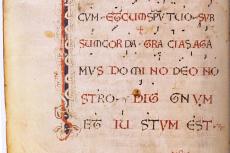 CVM · ET CUM SPV TUO · SVR
SUM COR DA · GRA CIAS AGA
MVS DO MI NO DEO NO
STRO · DIG GNVM
ET IV STVM EST ·